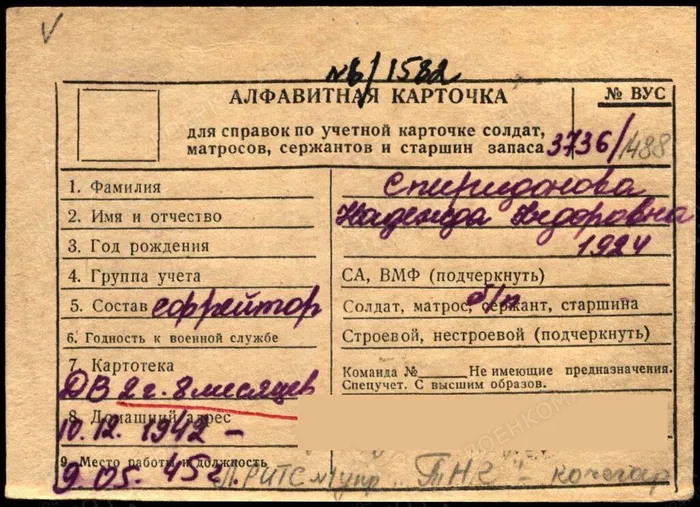 №6/1582
АЛФАВИТНАЯ КАРТОЧКА
№ ВУС
для справок по учетной карточке солдат,
матросов, сержантов и старшин запаса
3736/488
1. Фамилия
Спиридонова
2. Имя и отчество
Надежда Федоровна
3. Год рождения
1924
4. Группа учета
СА, ВМФ (подчеркнуть)
5. Состав ефрейтор
Солдат, матрос, сержант, старшина
б/п
6. Годность к военной службе
Строевой, нестроевой (подчеркнуть)
7. Картотека
Команда № Не имеющие предназначения.
Спецучет. С высшим образов.
ДВ 2 г. 8 месяцев
8. Домашний адрес
10.12. 1942 –
9. Место работы и должность
9.05. 45 г.
ПРИТС №1 упр. "ТНГ" – кочегар